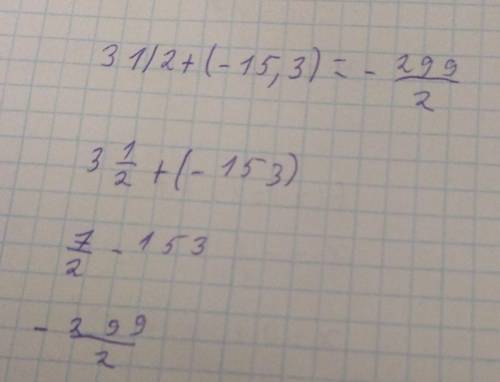 3 1/2 + (- 15,3) = - 299/2
3 1/2 + (- 153)
7/2 - 153
- 299/2